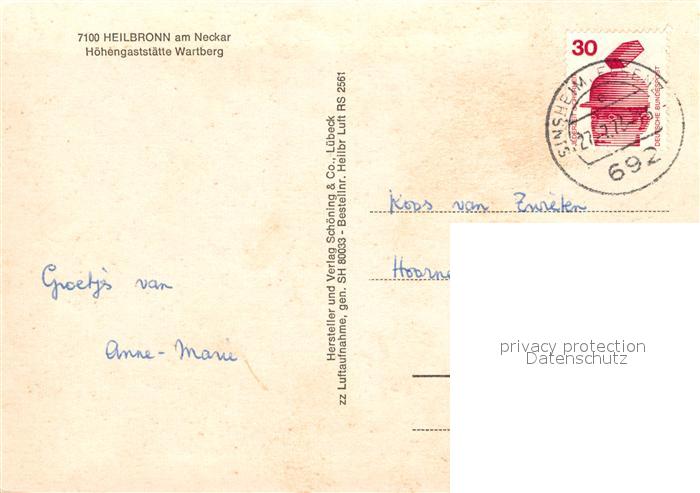 7100 HEILBRONN am Neckar
Höhengaststätte Wartberg
30
DEUTSCHE BUNDESPOST
SINSHEIM
692
Hersteller und Verlag Schöning & Co., Lübeck
zz Luftaufnahme, gen. SH 80033 - Bestellnr. Heilbr Luft RS 2561
Koos van Zwieten
Hoorne
Groetjes van
Anne-Marie
privacy protection
Datenschutz